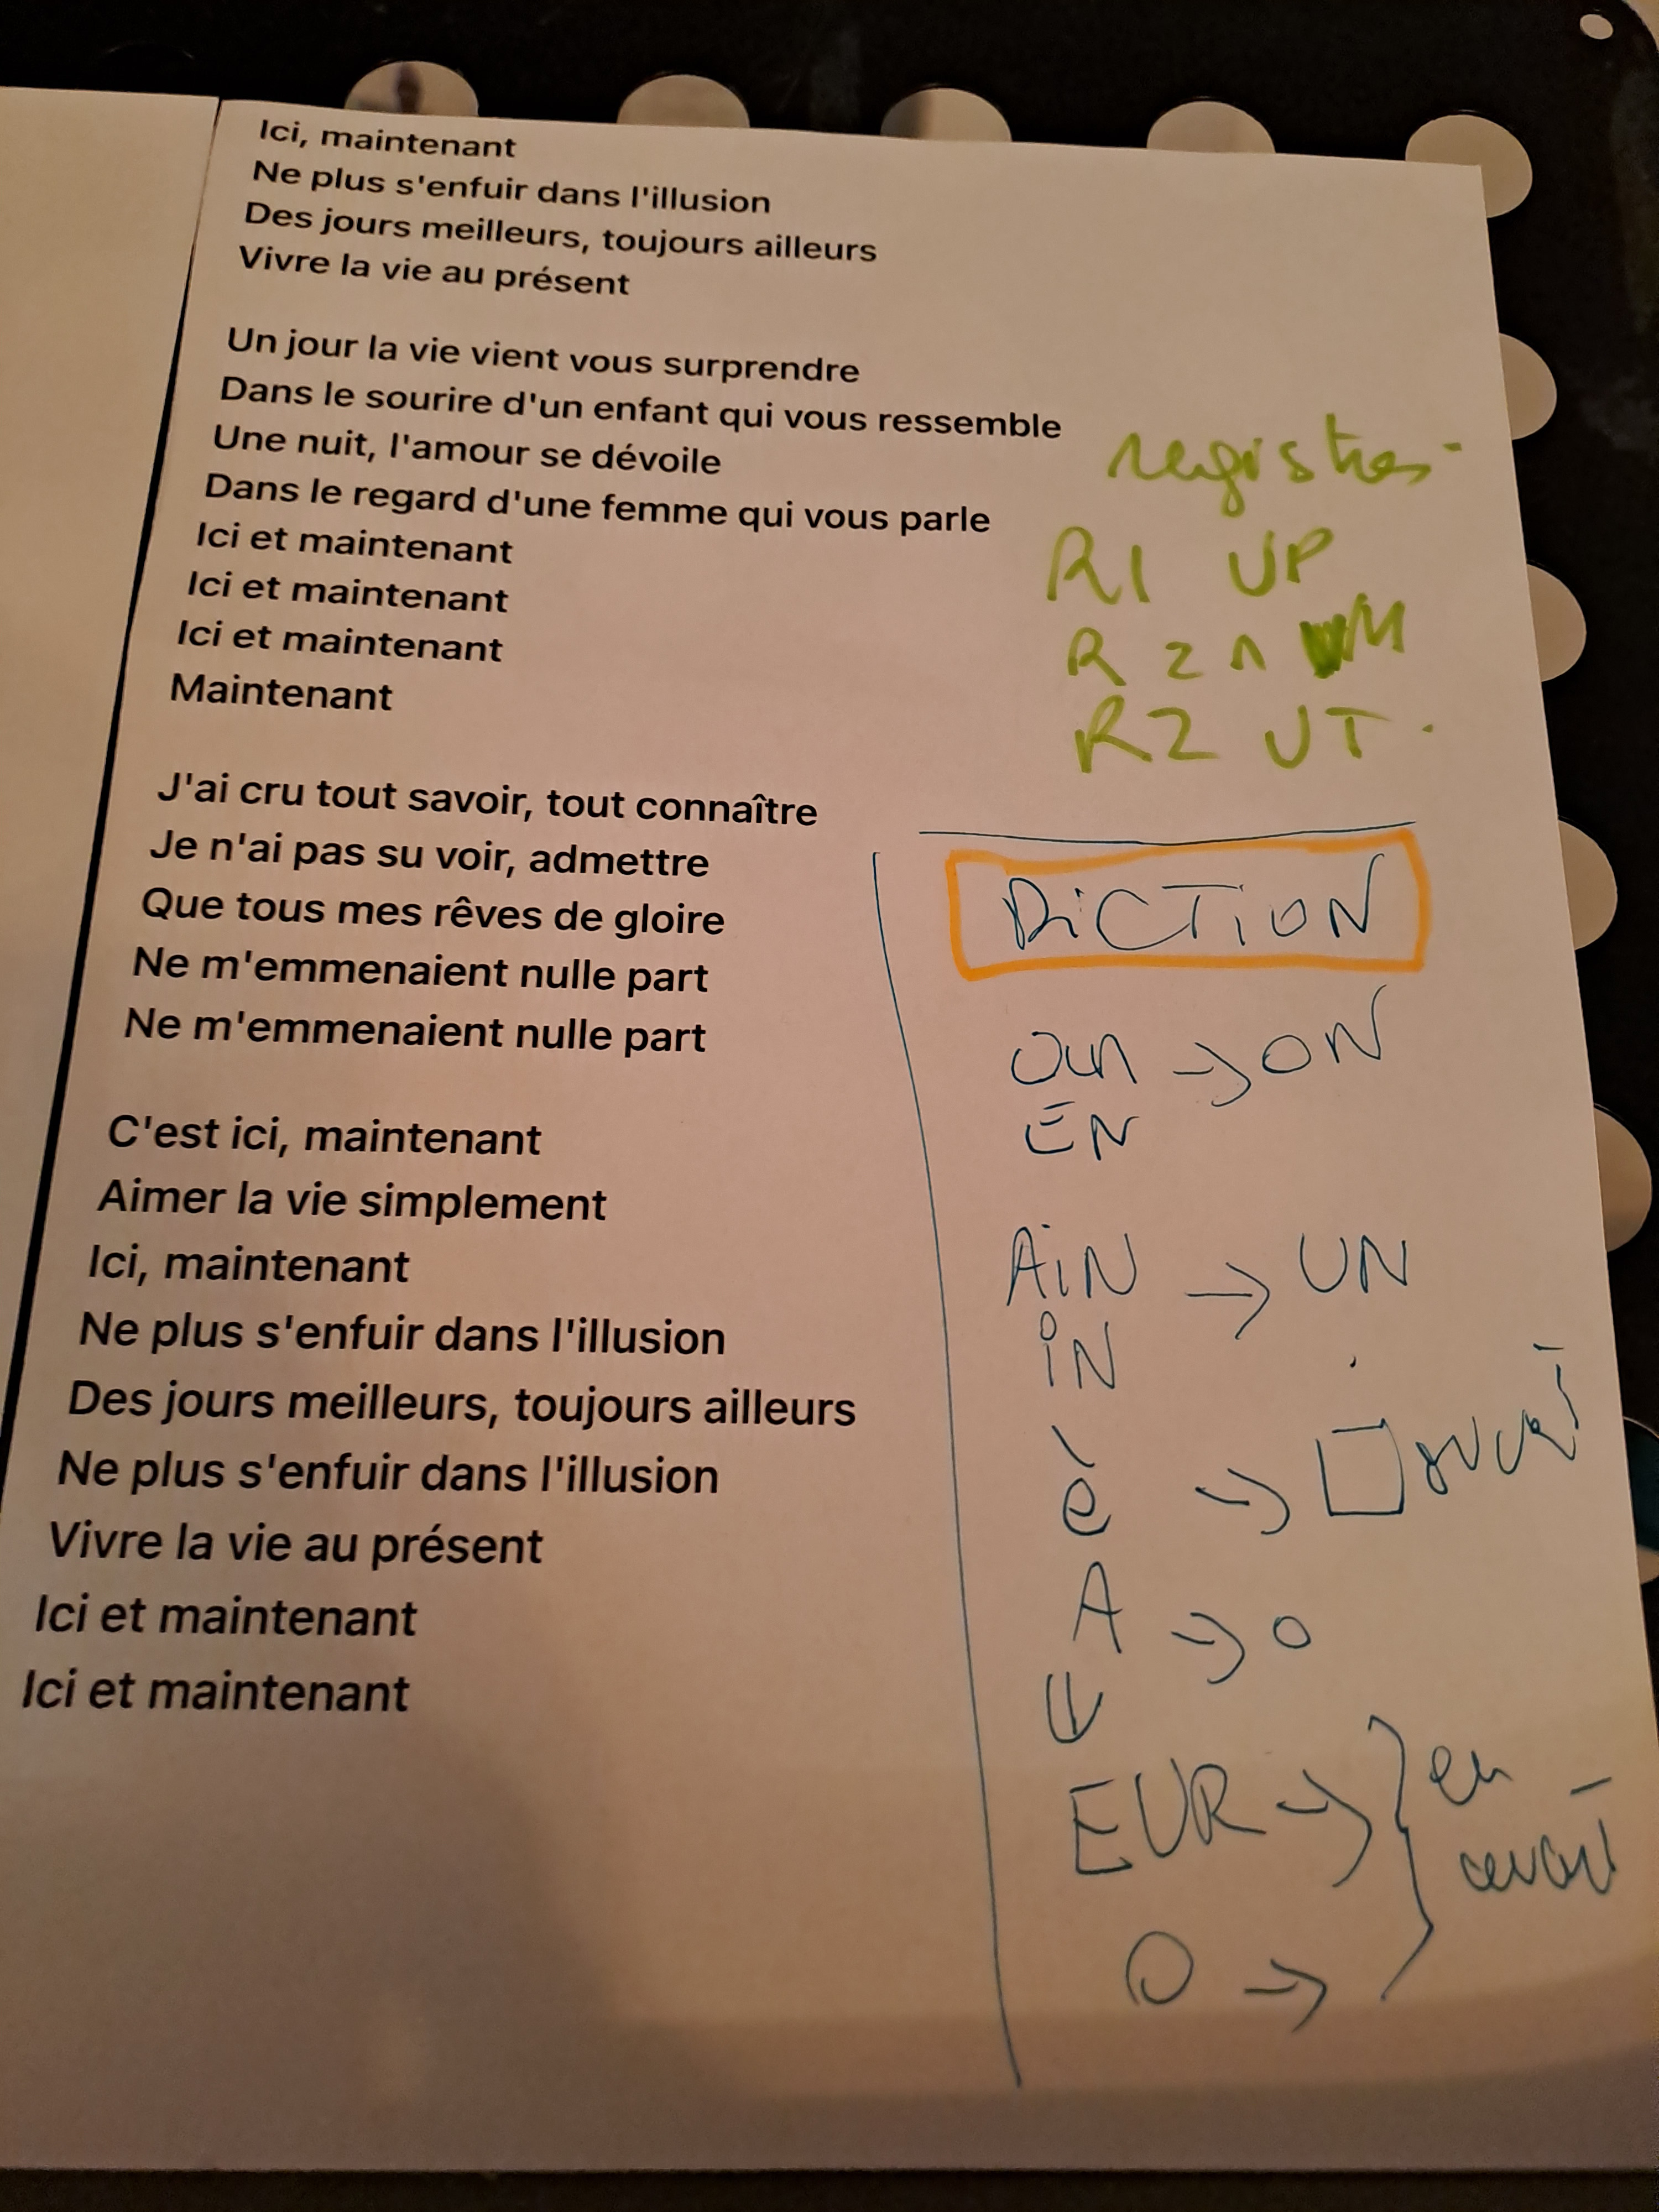 Ici, maintenant
Ne plus s'enfuir dans l'illusion
Des jours meilleurs, toujours ailleurs
Vivre la vie au présent
Un jour la vie vient vous surprendre
Dans le sourire d'un enfant qui vous ressemble
Une nuit, l'amour se dévoile
Dans le regard d'une femme qui vous parle
Ici et maintenant
Ici et maintenant
Ici et maintenant
Maintenant
J'ai cru tout savoir, tout connaître
Je n'ai pas su voir, admettre
Que tous mes rêves de gloire
Ne m'emmenaient nulle part
Ne m'emmenaient nulle part
C'est ici, maintenant
Aimer la vie simplement
Ici, maintenant
Ne plus s'enfuir dans l'illusion
Des jours meilleurs, toujours ailleurs
Ne plus s'enfuir dans l'illusion
Vivre la vie au présent
Ici et maintenant
Ici et maintenant
R1 UP
R2
R2 UT
DiCTiON
→ ON
EN
AiN → UN
iN
è → ouvert
A → o
EUR → en
O →